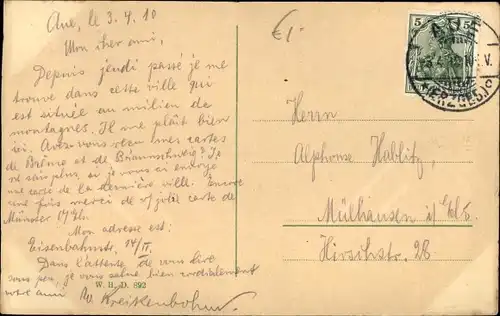 Aue, le 3.9.10
Mon cher ami,
Depuis jeudi passé je me
trouve dans cette ville qui
est située au milieu de
montagnes. Il me plaît bien
ici. Avez-vous reçu mes cartes
de Brême et de Braunschweig? Je
ne sais plus, si je vous ai envoyé
une carte de la dernière ville. Encore
une fois merci de v/ jolie carte de
Münster
Mon adresse est:
Eisenbahnstr. 14/II.
Dans l'attente de vous lire
sous peu, je vous salue bien cordialement
votre ami W. Kreikenbohm.
W. H. D. 892
€1.-
5 5
AUE
(ERZGEB.)
Herrn
Alphonse Hablitz,
Mülhausen i/Els.
Hirschstr. 28